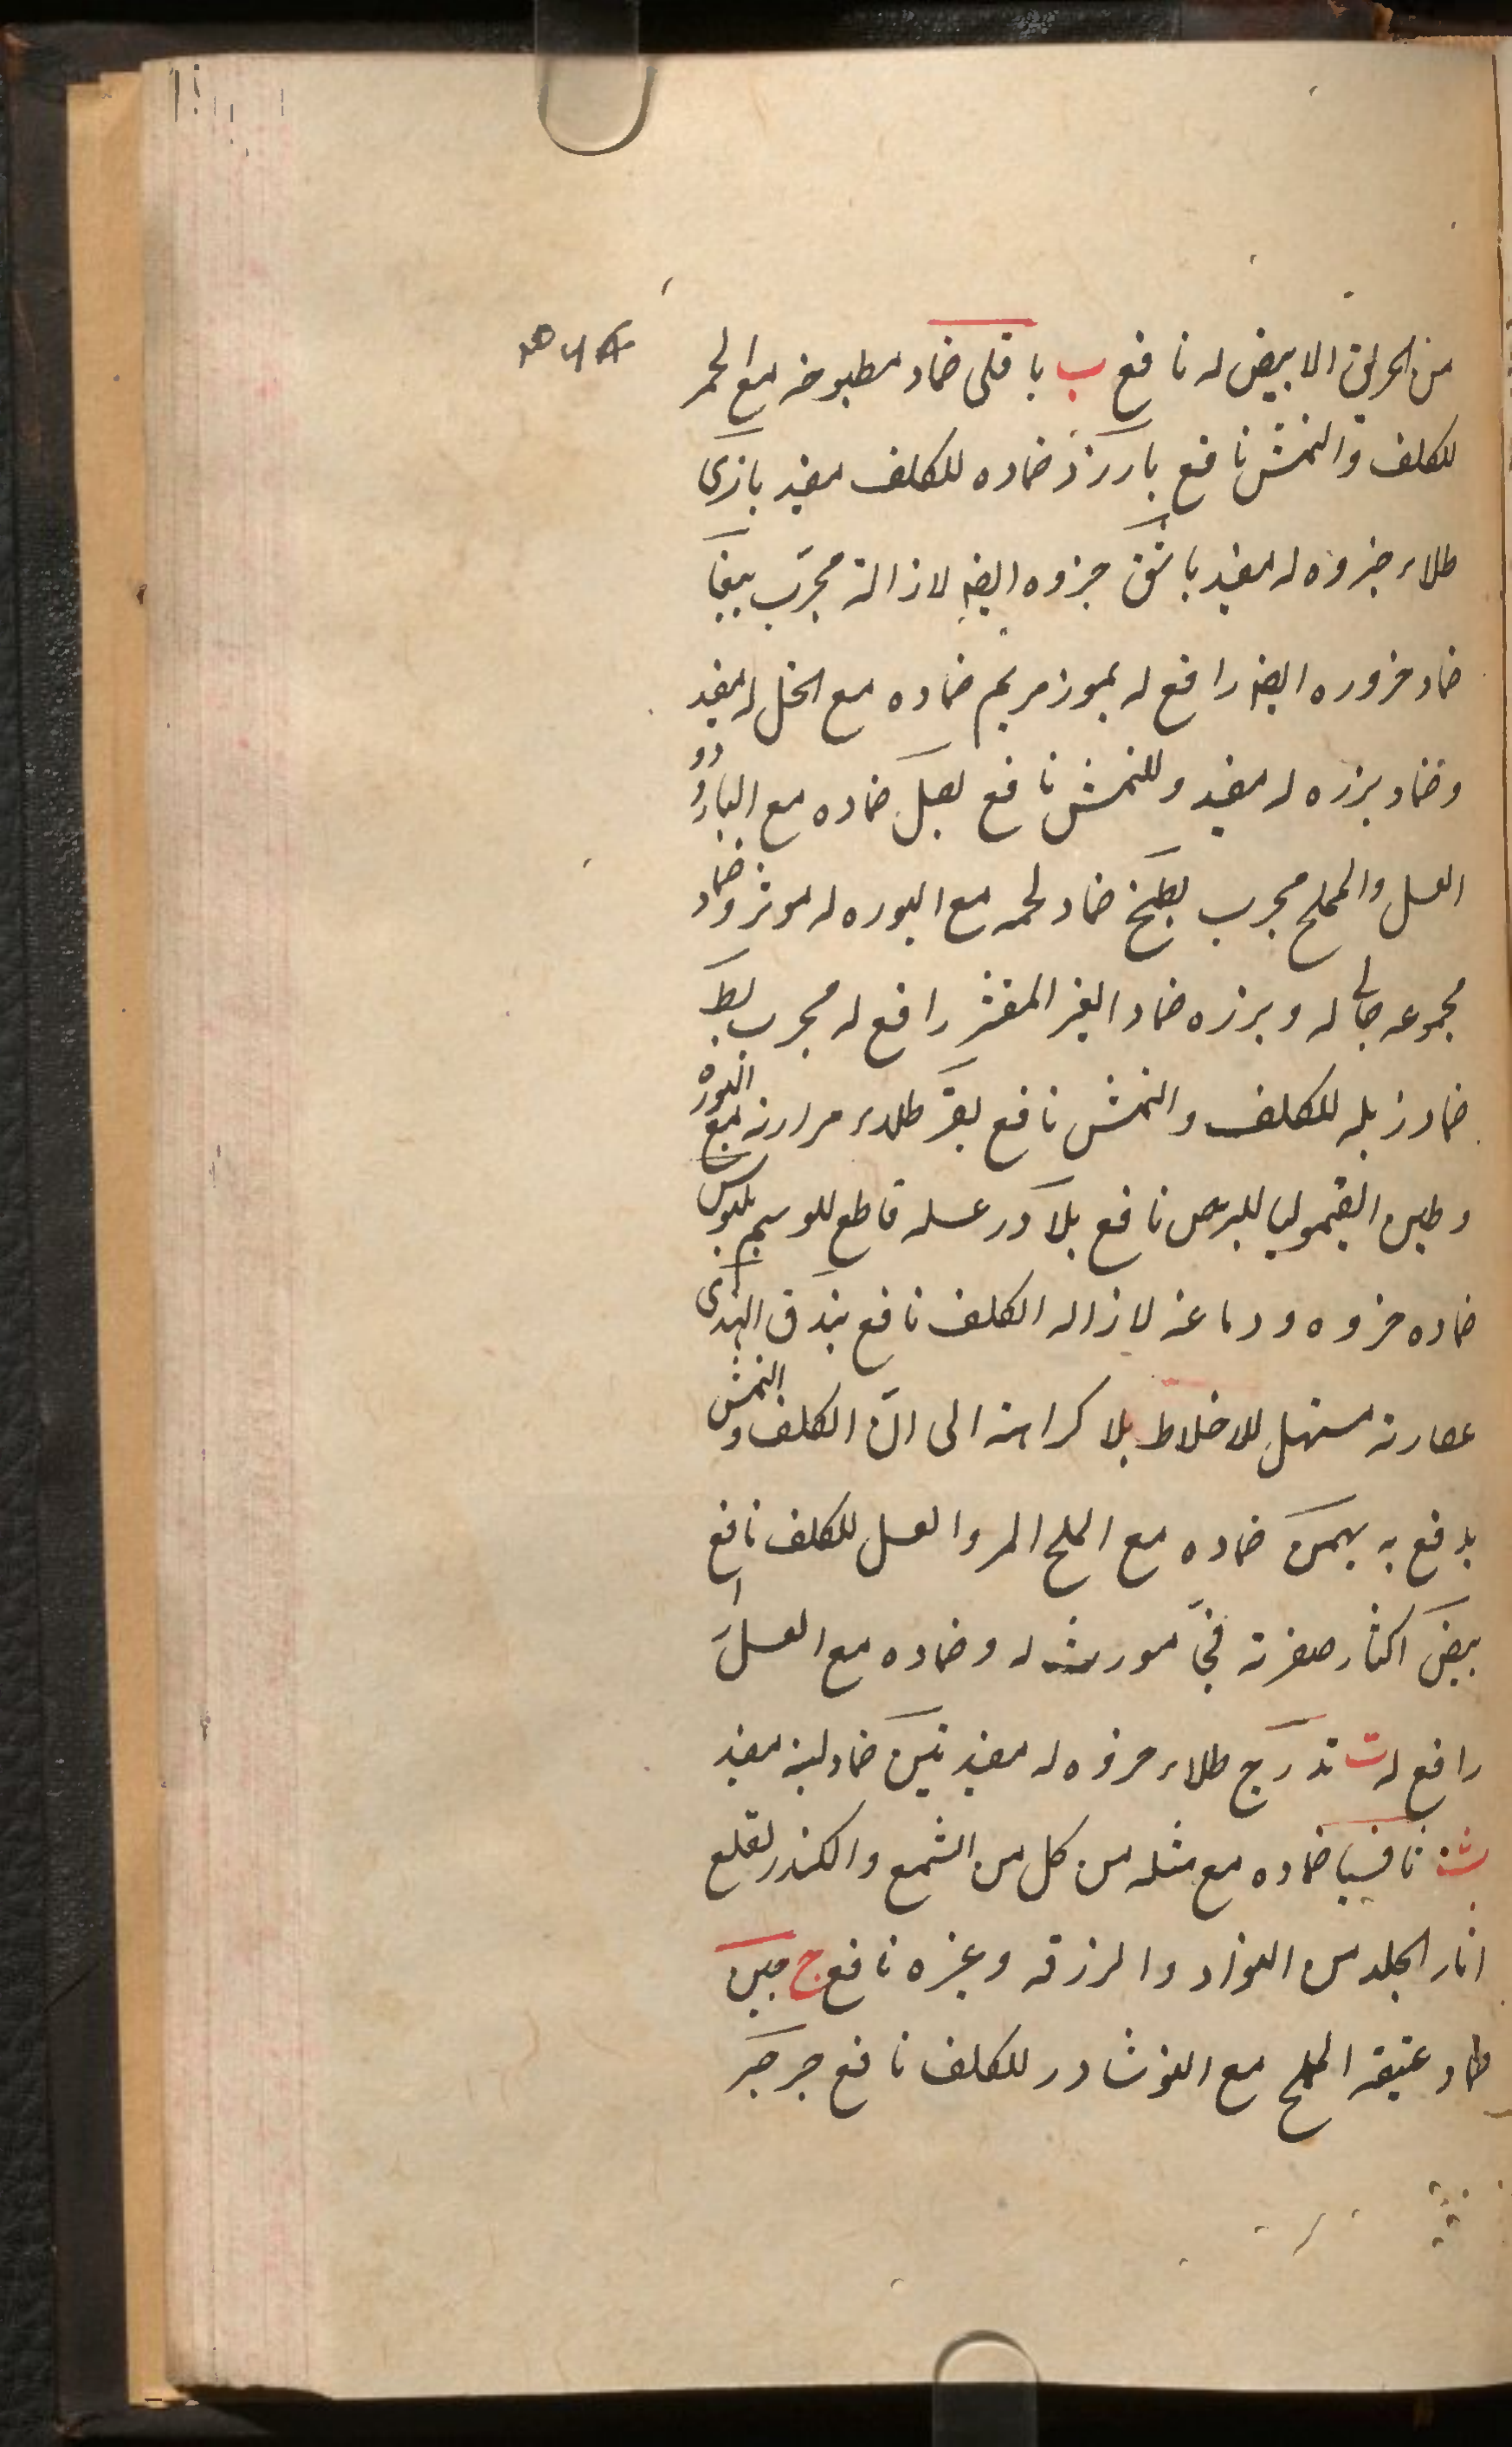 من الخربق الابيض له نافع ب باقلى ضماد مطبوخه مع الخمر
للكلف والنمش نافع بارزد ضماده للكلف مفيد بازى
طلاء خروه له مفيد باشق خروه ايضا لازالته مجرّب ببغا
ضماد خروره ايضا رافع له بخور مريم ضماده مع الخل له مفيد
وضماد بزره له مفيد وللنمش نافع بصل ضماده مع البارود و
العسل والملح مجرب بطيخ ضماد لحمه مع البوره له موثر وضماد
مجموعه جالى له وبزره ضماد الغير المقشر رافع له مجرب بط
ضماد زبله للكلف والنمش نافع بقر طلاء مرارته مع البوره
وطين القيموليا للبرص نافع بلادر عسله قاطع للوسم بلبوس
ضماده خروه ودماغه لازاله الكلف نافع بندق الهندى
عصارته مسهل للاخلاط بلا كراهته الى انّ الكلف والنمش
يدفع به بهمن ضماده مع الملح المر والعسل للكلف نافع
بيض اكثار صفرته فىّ مورث له وضماده مع العسل
رافع له ت تدرج طلاء خروه له مفيد تين ضماد لبنه مفيد
ث ثافسيا ضماده مع مثله من كل من الشمع والكندر لقلع
اثار الجلد من السواد والزرقه وغيره نافع ج جبن
ضماد عتيقه المملح مع النوشادر للكلف نافع جرجير